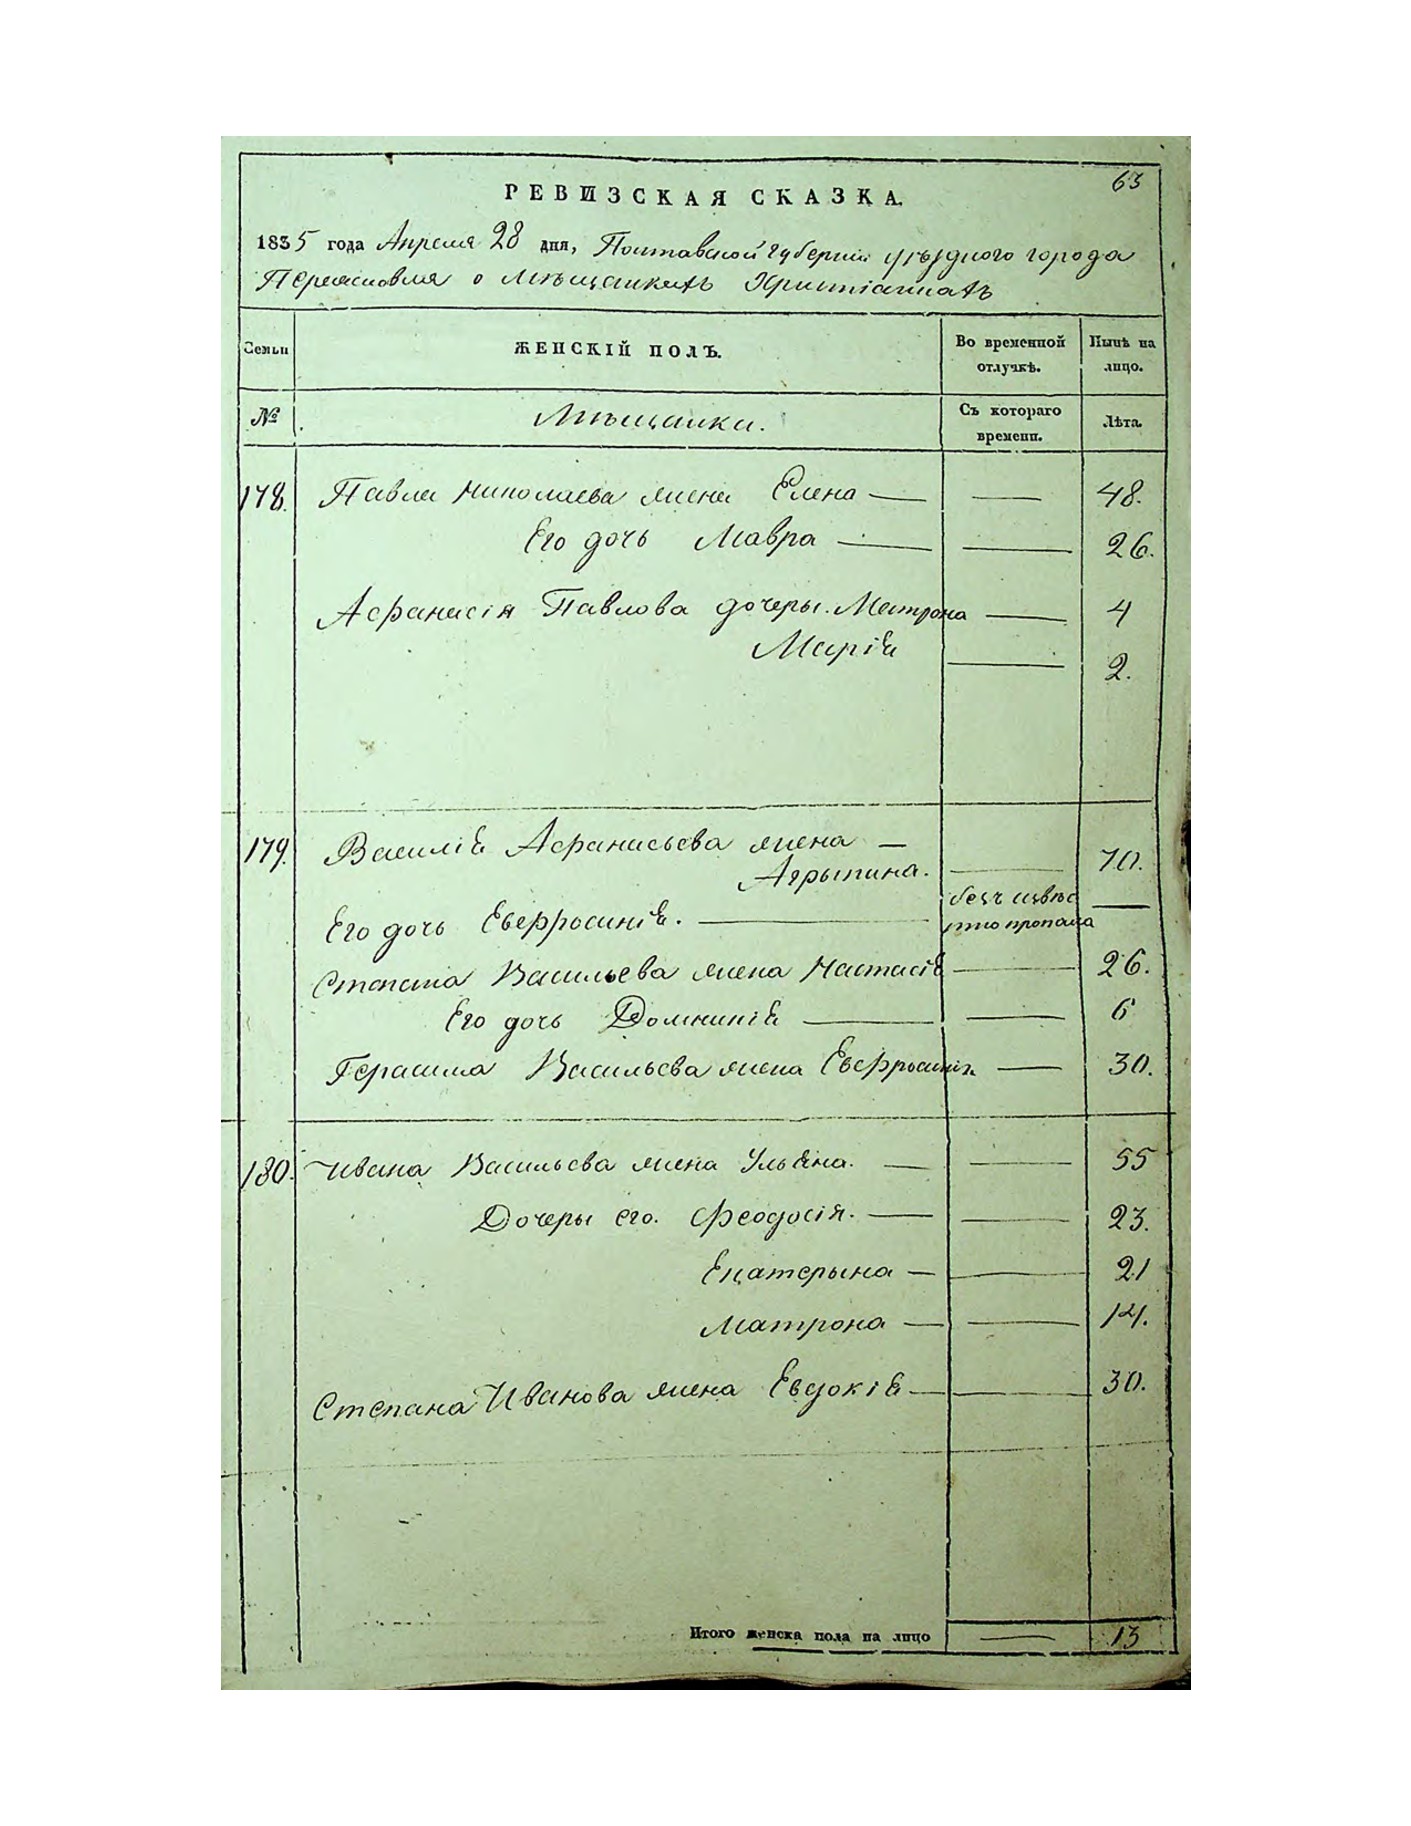 63
РЕВИЗСКАЯ СКАЗКА.
1835 года Апреля 28 дня, Полтавской Губернии уѣздного города
Переяславля о Мѣщанкахъ Христіанкахъ
Семьи
ЖЕНСКІЙ ПОЛЪ.
Во временной отлучкѣ.
Нынѣ на лицо.
№
Мѣщанки.
Съ котораго времени.
Лѣта.
178. Павла Николаева жена Елена — — 48.
Его дочь Мавра — — 26.
Афанасія Павлова дочеры. Матрона — 4
Марія — 2.
179. Василія Афанасьева жена —
Агрыпина. — 70.
Его дочь Евфросинія. — безъ извѣстно пропала —
Степана Васильева жена Настасія — 26.
Его дочь Домникія — — 6
Герасима Васильева жена Евфросинія — 30.
180. Ивана Васильева жена Ульяна. — — 55
Дочеры его. Феодосія. — — 23.
Екатерына — — 21
Матрона — — 14.
Степана Иванова жена Евдокія — — 30.
Итого женска пола на лицо — 13